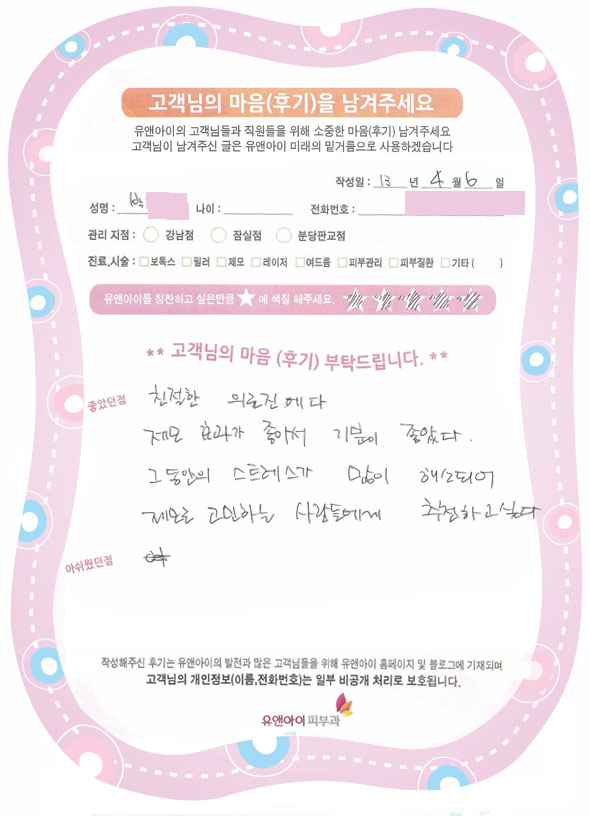 고객님의 마음(후기)을 남겨주세요
유앤아이의 고객님들과 직원들을 위해 소중한 마음(후기) 남겨주세요
고객님이 남겨주신 글은 유앤아이 미래의 밑거름으로 사용하겠습니다
작성일 : 13 년 4 월 6 일
성명 : 박 나이 : 전화번호 :
관리 지점 : 강남점 잠실점 분당판교점
진료,시술 : 보톡스 필러 제모 레이저 여드름 피부관리 피부질환 기타 ( )
유앤아이를 칭찬하고 싶은만큼 ★ 에 색칠 해주세요.
** 고객님의 마음 (후기) 부탁드립니다. **
좋았던점 친절한 의료진에다
제모 효과가 좋아서 기분이 좋았다.
그동안의 스트레스가 많이 해소되어
제모로 고민하는 사람들에게 추천하고 싶다
아쉬웠던점
작성해주신 후기는 유앤아이의 발전과 많은 고객님들을 위해 유앤아이 홈페이지 및 블로그에 기재되며
고객님의 개인정보(이름,전화번호)는 일부 비공개 처리로 보호됩니다.
유앤아이피부과